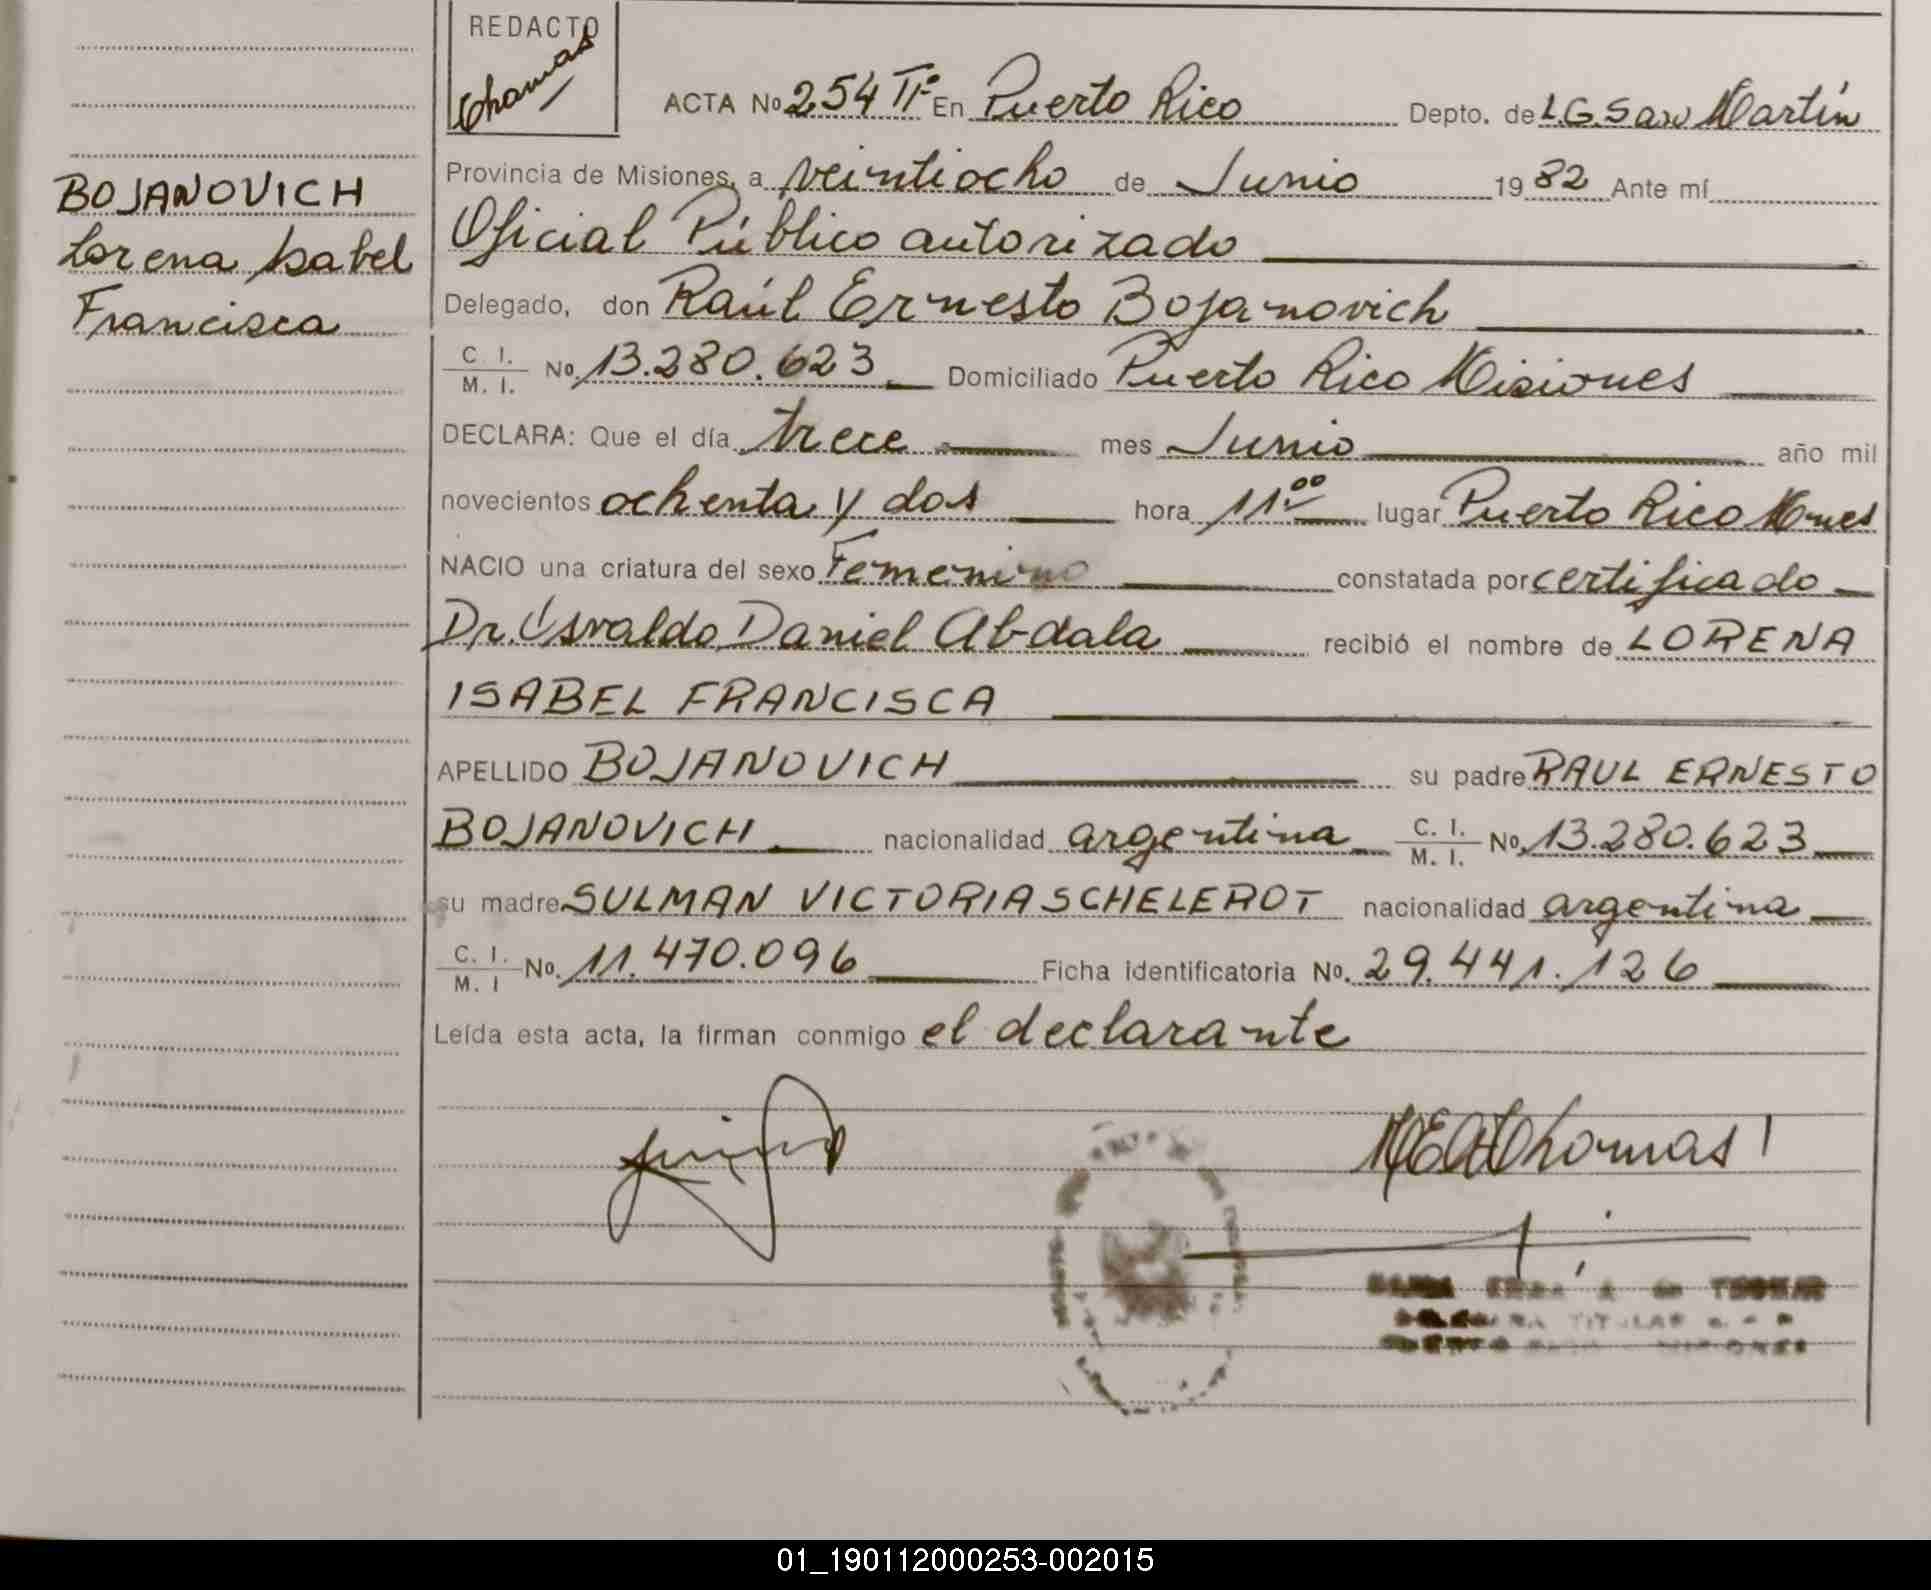 REDACTO
Thomas
ACTA No 254 Tº II En Puerto Rico Depto. de L.G. San Martín
Provincia de Misiones, a veintiocho de Junio 1982 Ante mí
Oficial Público autorizado
Delegado, don Raúl Ernesto Bojanovich
C. I. / M. I. No. 13.280.623 Domiciliado Puerto Rico Misiones
DECLARA: Que el día trece mes Junio año mil
novecientos ochenta y dos hora 11⁰⁰ lugar Puerto Rico Mnes
NACIO una criatura del sexo Femenino constatada por certificado
Dr. Osvaldo Daniel Abdala recibió el nombre de LORENA
ISABEL FRANCISCA
APELLIDO BOJANOVICH su padre RAUL ERNESTO
BOJANOVICH nacionalidad argentina C. I. / M. I. No. 13.280.623
su madre SULMAN VICTORIA SCHELEROT nacionalidad argentina
C. I. / M. I No. 11.470.096 Ficha identificatoria No. 29.441.126
Leída esta acta, la firman conmigo el declarante
BOJANOVICH
Lorena Isabel
Francisca
TITULAR
01_190112000253-002015